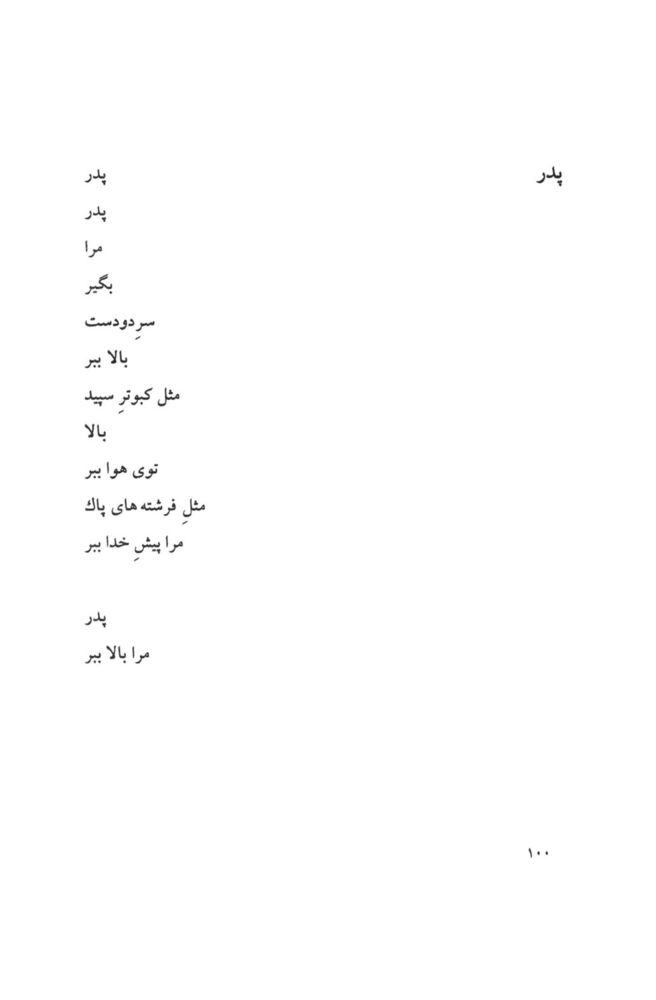 پدر
پدر
پدر
مرا
بگیر
سرِدودست
بالا ببر
مثل کبوترِ سپید
بالا
توی هوا ببر
مثلِ فرشته های پاك
مرا پیشِ خدا ببر
پدر
مرا بالا ببر
۱۰۰